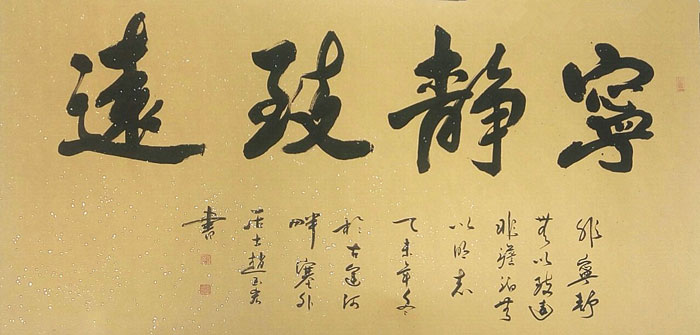 寧靜致遠
非寧靜
無以致遠
非澹泊無
以明志
乙未年冬
於古運河
畔塞外
居士趙
書